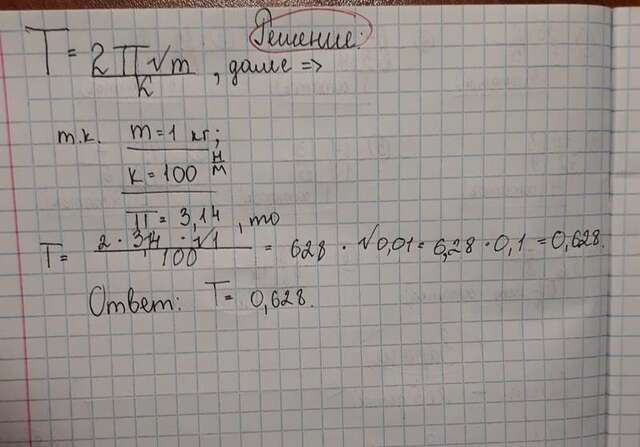 Решение:
T = 2π√m / K , далее =>
т.к. m = 1 кг;
к = 100 Н/м
π = 3,14 , то
T = 2 · 3,14 · √1 / 100 = 628 · √0,01 = 6,28 · 0,1 = 0,628.
Ответ: T = 0,628.